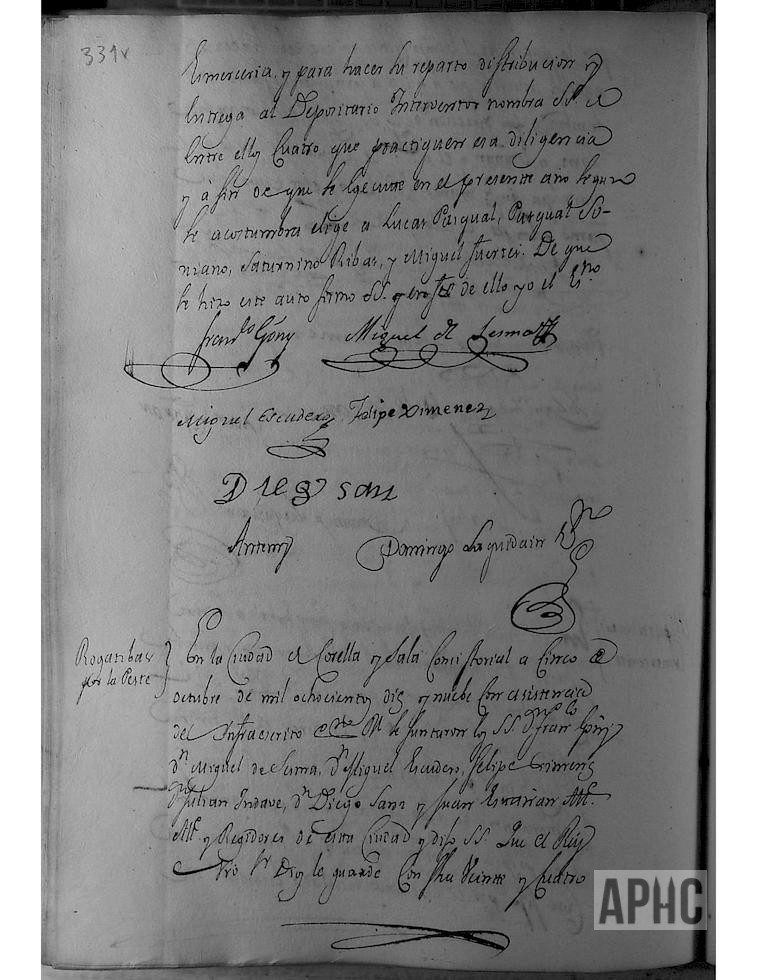 331v
Esmerceria, y para hacer su reparto distribucion y
entrega al Depositario Interventor nombra SS. de
entre ellos Cuatro que practiquen esa diligencia
y à fin de que se egecute en el presente año segun
se acostumbra elige a Lucas Pasqual, Pasqual So-
riano, Saturnino Ribas, y Miguel fuertes. De que
se hizo este auto firmo SS. y de ello yo el Esno
Franco Goñy Miguel de Lesma
Miguel Escudero Felipe Ximenez
Diego sanz
Antemy Domingo Laquidain Esno
Rogatibas
por la Peste
En la Ciudad de Corella y Sala Consistorial a Cinco de
octubre de mil ochocientos diez y nuebe Con asistencia
del Infraescrito Esno Rl. se juntaron los SS. Dn Franco Goñi
Dn Miguel de Lesma, Dn Miguel Escudero, Felipe Ximenez
Dn Julian Indave, Dn Diego Sanz y Juan Escainan Alle.
Alle. y Regidores de esta Ciudad y dijo SS. Que el Rey
Ntro Sr Dios le guarde Con fha Veinte y Cuatro
APHC